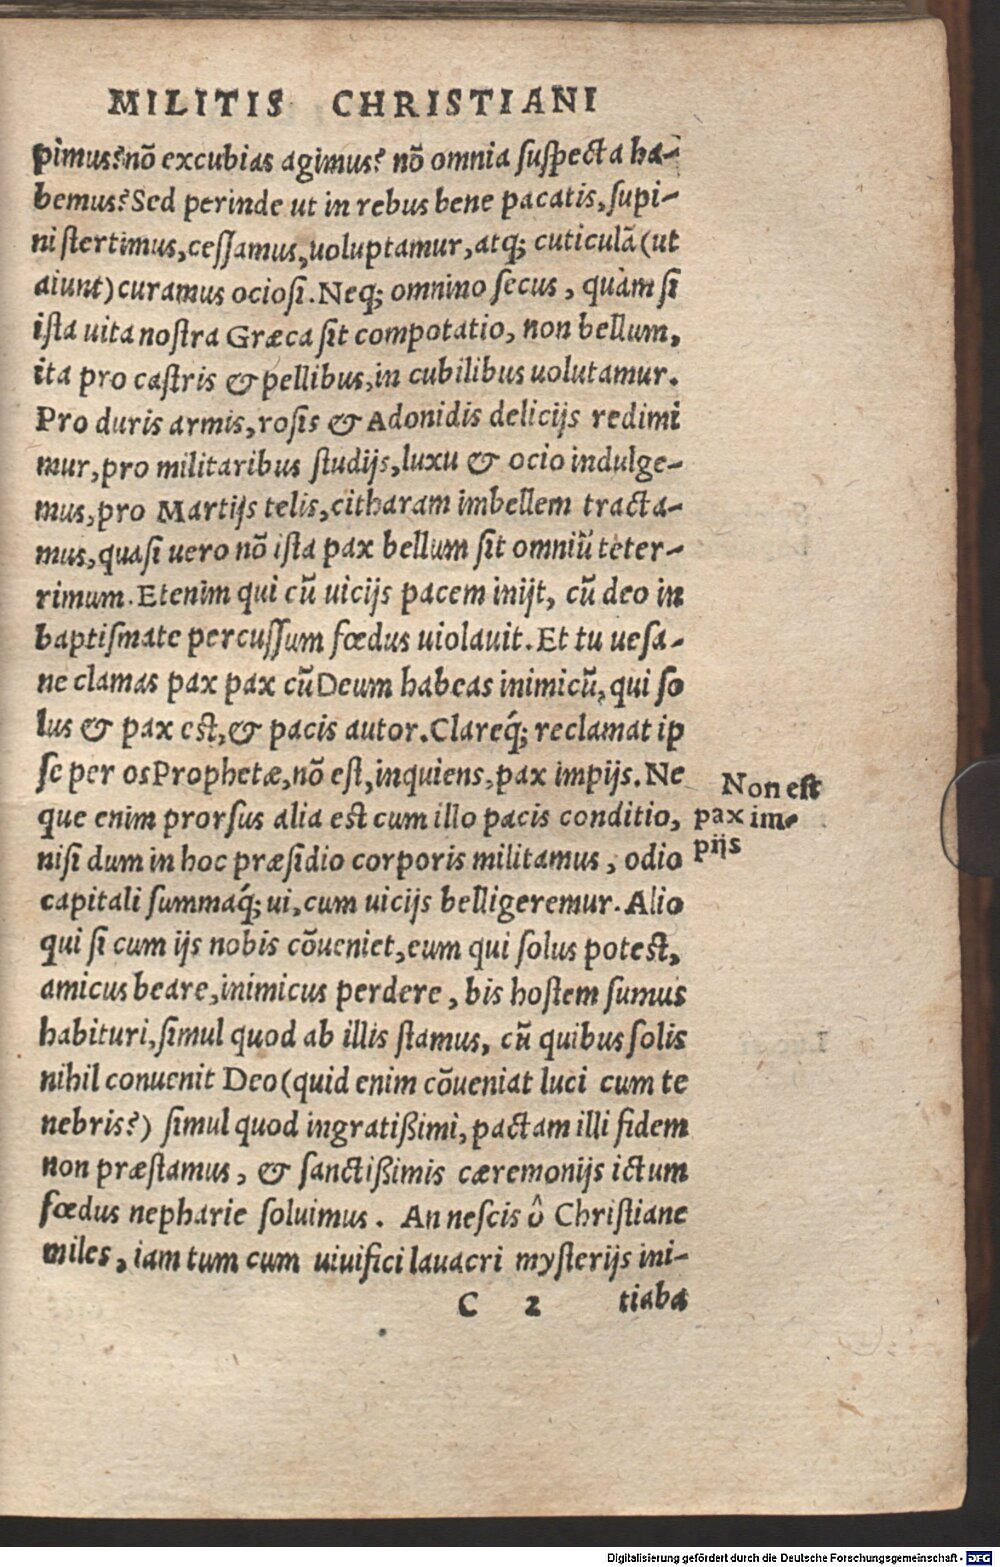 MILITIS CHRISTIANI
pimus? nõ excubias agimus? nõ omnia ſuſpecta ha-
bemus? Sed perinde ut in rebus bene pacatis, ſupi-
ni ſtertimus, ceſſamus, uoluptamur, atq; cuticulã (ut
aiunt) curamus ocioſi. Neq; omnino ſecus, quàm ſi
iſta uita noſtra Græca ſit compotatio, non bellum,
ita pro caſtris & pellibus, in cubilibus uolutamur.
Pro duris armis, roſis & Adonidis delicijs redimi
mur, pro militaribus ſtudijs, luxu & ocio indulge-
mus, pro Martijs telis, citharam imbellem tracta-
mus, quaſi uero nõ iſta pax bellum ſit omniũ teter-
rimum. Etenim qui cũ uicijs pacem inijt, cũ deo in
baptiſmate percuſſum fœdus uiolauit. Et tu ueſa-
ne clamas pax pax cũ Deum habeas inimicũ, qui ſo
lus & pax eſt, & pacis autor. Clareq́; reclamat ip
ſe per os Prophetæ, nõ eſt, inquiens, pax impijs. Ne
que enim prorſus alia eſt cum illo pacis conditio,
niſi dum in hoc præſidio corporis militamus, odio
capitali ſummaq́; ui, cum uicijs belligeremur. Alio
qui ſi cum ijs nobis cõueniet, eum qui ſolus poteſt,
amicus beare, inimicus perdere, bis hoſtem ſumus
habituri, ſimul quod ab illis ſtamus, cũ quibus ſolis
nihil conuenit Deo (quid enim cõueniat luci cum te
nebris?) ſimul quod ingratißimi, pactam illi fidem
non præſtamus, & ſanctißimis cæremonijs ictum
fœdus nepharie ſoluimus. An neſcis ô Chriſtiane
miles, iam tum cum uiuifici lauacri myſterijs ini-
C 2 tiaba
Non eſt
pax im-
pijs
Digitalisierung gefördert durch die Deutsche Forschungsgemeinschaft - DFG